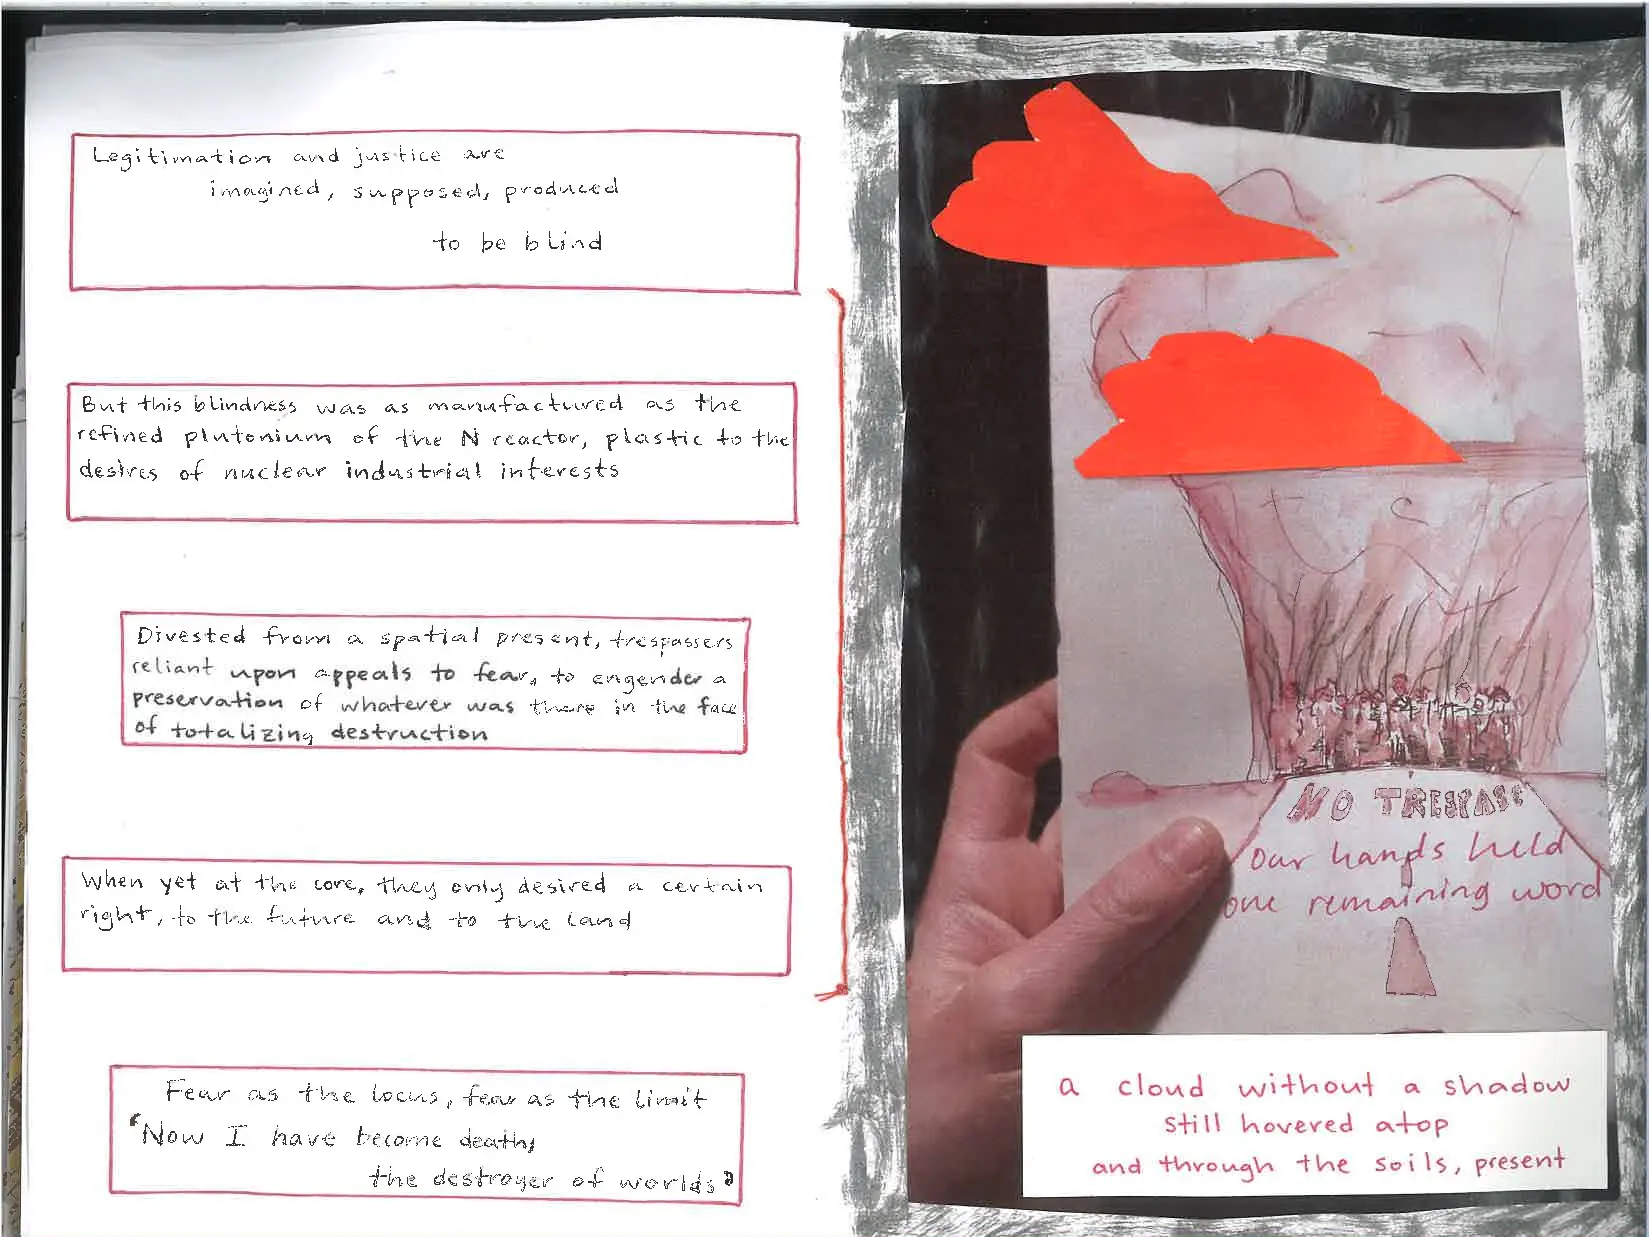 Legitimation and justice are
imagined, supposed, produced
to be blind
But this blindness was as manufactured as the
refined plutonium of the N reactor, plastic to the
desires of nuclear industrial interests
Divested from a spatial present, trespassers
reliant upon appeals to fear, to engender a
preservation of whatever was there in the face
of totalizing destruction
When yet at the core, they only desired a certain
right, to the future and to the land
Fear as the locus, fear as the limit
"Now I have become death,
the destroyer of worlds"
NO TRESPASS
our hands held
one remaining word
a cloud without a shadow
still hovered atop
and through the soils, present